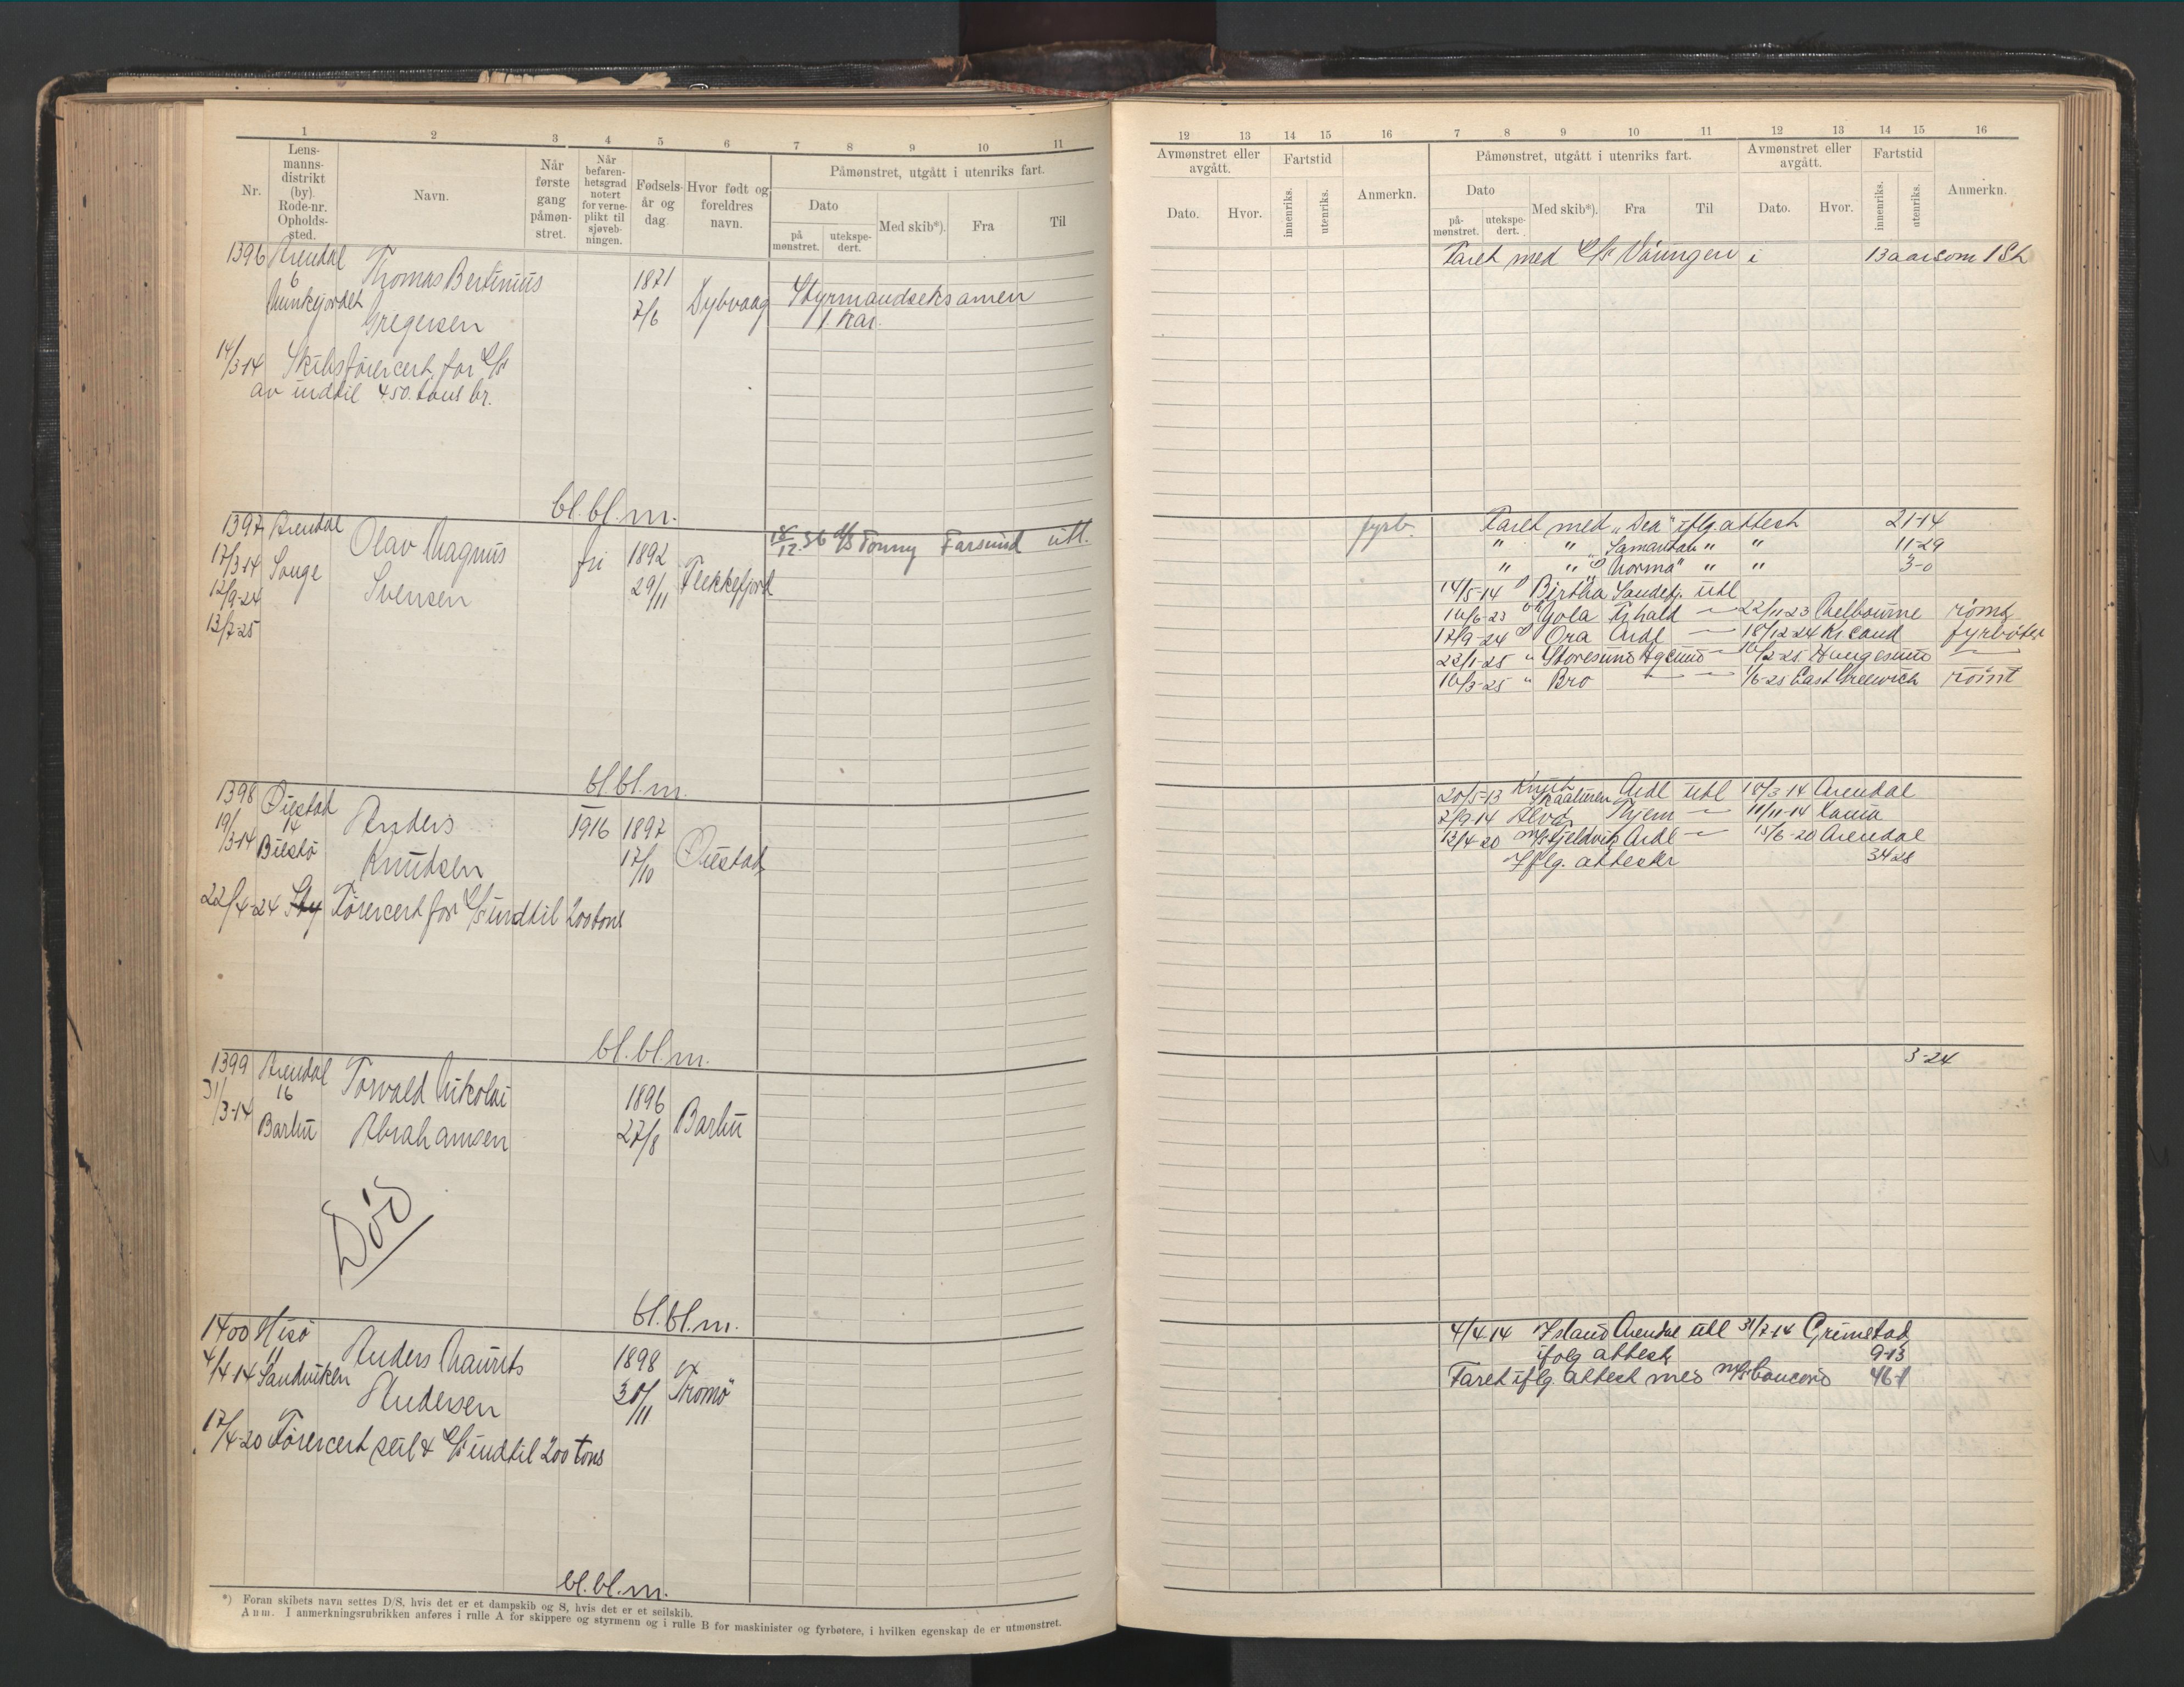 1 2 3 4 5 6 7 8 9 10 11
Nr.
Lens-
manns-
distrikt
(by).
Rode-nr.
Opholds-
sted.
Navn.
Når
første
gang
påmøn-
stret.
Når
befaren-
hetsgrad
notert
for verne-
plikt til
sjøveb-
ningen.
Fødsels-
år og
dag.
Hvor født og
foreldres
navn.
Påmønstret, utgått i utenriks fart.
Dato
på
mønstret.
utekspe-
dert.
Med skib*).
Fra
Til
1396 Arendal
6
Munkejordet
Thomas Bertinius
Gregersen
1871
7/6
Dybvaag
Styrmandseksamen
1. kar.
14/3-14 Skibsførercert. for
av indtil 450 tons br.
bl. bl. m.
1397 Arendal
17/3-14 Songe
12/9-24
13/7-25
Olav Magnus
Svensen
fri
1892
29/11
Flekkefjord
Tonny Farsund utl.
bl. bl. m.
1398 Øiestad
14
19/3-14
Anders
Knudsen
1916
1897
17/10
Øiestad
22/4-24 Sty Førercert for indtil 200 tons
bl. bl. m.
1399 Arendal
16
31/3-14 Barbu
Torvald Nikolai
Abrahamsen
1896
27/8
Barbu
Død
bl. bl. m.
1400 Hisø
11
4/4-14 Sandviken
Anders Maurits
Andersen
1898
30/11
Tromø
17/4-20 Førercert seil & indtil 200 tons
bl. bl. m.
*) Foran skibets navn settes D/S, hvis det er et dampskib og S, hvis det er et seilskib.
Anm. I anmerkningsrubrikken anføres i rulle A for skippere og styrmenn og i rulle B for maskinister og fyrbøtere, i hvilken egenskap de er utmønstret.
12 13 14 15 16 7 8 9 10 11 12 13 14 15 16
Avmønstret eller
avgått.
Dato. Hvor.
Fartstid
innenriks.
utenriks.
Anmerkn.
Påmønstret, utgått i utenriks fart.
Dato
på-
mønstret.
utekspe-
dert.
Med skib*).
Fra
Til
Avmønstret eller
avgått.
Dato. Hvor.
Fartstid
innenriks.
utenriks.
Anmerkn.
Faret med Væringen i
fyrb.
Faret med "Dea" iflg. attest 21-14
" " " " 11-29
" " "Norma" " " 3-0
14/5-14 Birtha Sandefj. utl
Gola Frhald 22/11-23 Melbourne rømt
12/9-24 Ora Ardl 18/12-24 Kr.sand fyrbøter
22/1-25 " Storesund Hgsund Haugesund
16/3-25 " Bro 1/6-25 East Greenwich rømt
20/5-13 Knut
Skaaluren Ardl utl 18/3-14 Arendal
2/9-14 Hjem 11/11-14
12/4-20 Ardl 15/6-20 Arendal
Iflg. attester 34-28
3-24
4/4-14 Island Arendal utl 31/7-14 Grimstad
ifølg attest 9-13
Faret iflg. attest med 46-1